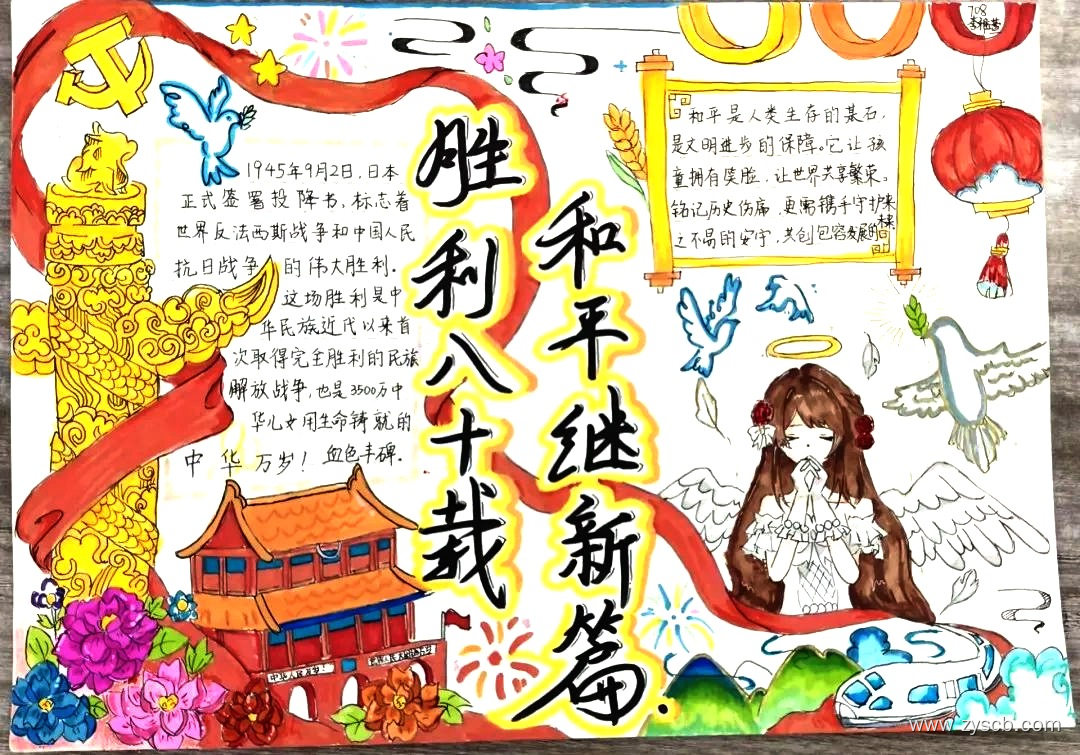 胜利八十载
和平继新篇.
1945年9月2日,日本
正式签署投降书,标志着
世界反法西斯战争和中国人民
抗日战争的伟大胜利.
这场胜利是中
华民族近代以来首
次取得完全胜利的民族
解放战争,也是3500万中
华儿女用生命铸就的
血色丰碑.
中华万岁!
和平是人类生存的基石,
是文明进步的保障。它让孩
童拥有笑脸,让世界共享繁荣。
铭记历史伤痛,更需携手守护来
之不易的安宁,共创包容发展的未来
708
中华人民
www.zyscb.com